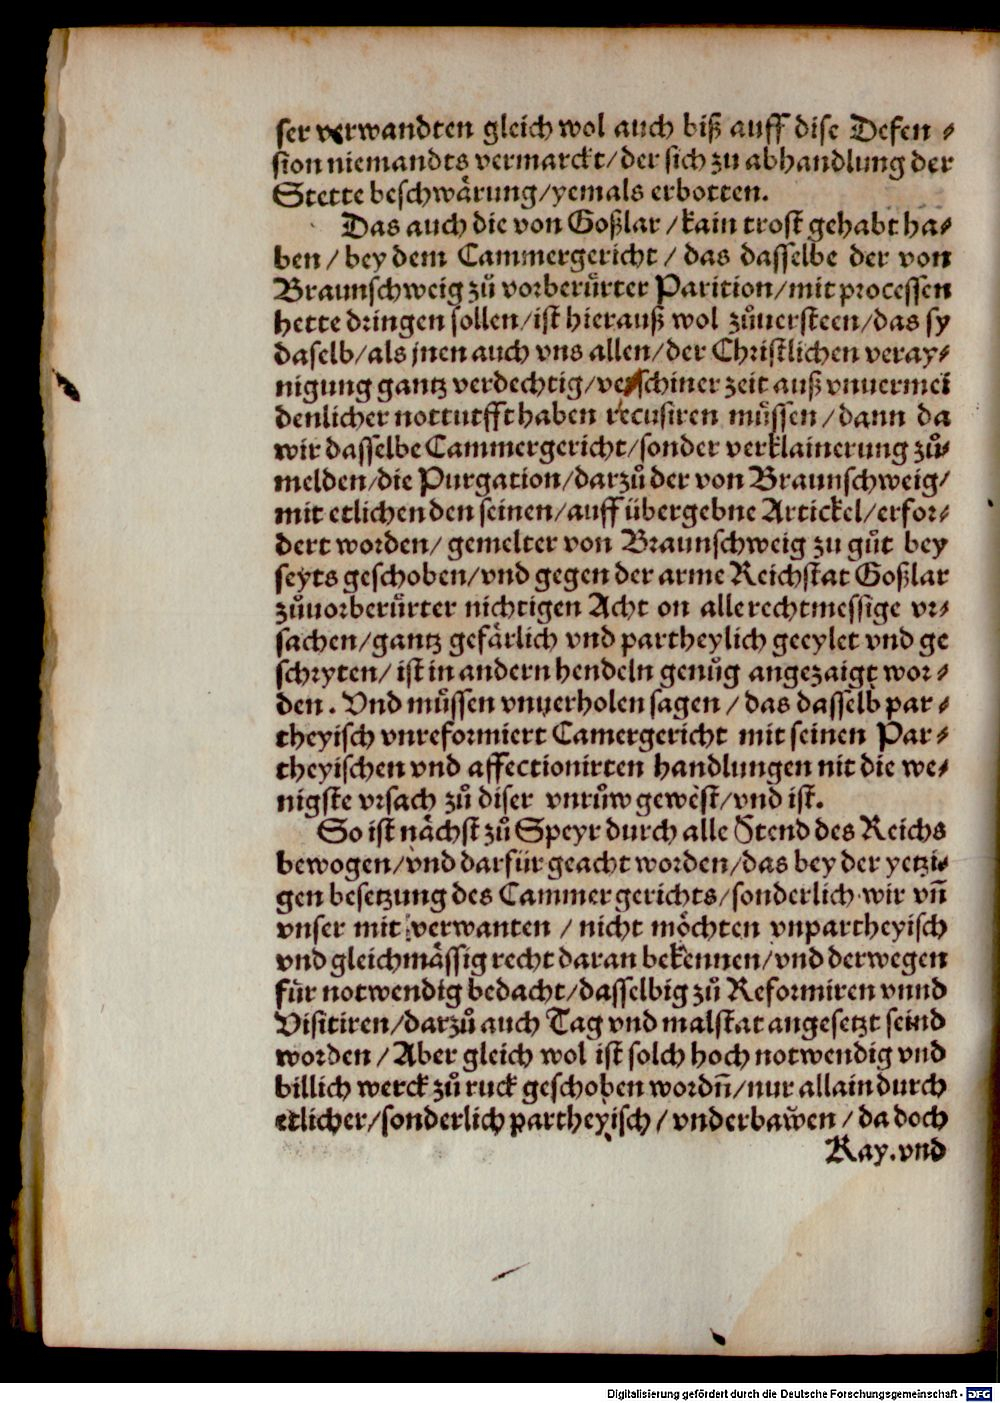 ser verwandten gleich wol auch biß auff dise Defen⸗
sion niemandts vermarckt/der sich zu abhandlung der
Stette beschwaͤrung/yemals erbotten.
Das auch die von Goßlar/kain trost gehabt ha⸗
ben/bey dem Cammergericht/das dasselbe der von
Braunschweig zuͦ vorberuͤrter Parition/mit processen
hette dringen sollen/ist hierauß wol zuͦuersteen/das sy
daselb/als jnen auch vns allen/der Christlichen veray⸗
nigung gantz verdechtig/verschiner zeit auß vnuermei
denlicher notturfft haben recusiren muͤssen/dann da
wir dasselbe Cammergericht/sonder verklainerung zuͦ⸗
melden/die Purgation/darzuͦ der von Braunschweig/
mit etlichen den seinen/auff uͤbergebne Artickel/erfor⸗
dert worden/gemelter von Braunschweig zu guͦt bey
seyts geschoben/vnd gegen der arme Reichstat Goßlar
zuͦuorberuͤrter nichtigen Acht on alle rechtmessige vr⸗
sachen/gantz gefaͤrlich vnd partheylich geeylet vnd ge
schryten/ist in andern hendeln genuͦg angezaigt wor⸗
den. Vnd muͤssen vnuerholen sagen/das dasselb par⸗
theyisch vnreformiert Camergericht mit seinen Par⸗
theyischen vnd affectionirten handlungen nit die we⸗
nigste vrsach zuͦ diser vnruͦw gewest/vnd ist.
So ist naͤchst zuͦ Speyr durch alle Stend des Reichs
bewogen/vnd darfuͤr geacht worden/das bey der yetzi⸗
gen besetzung des Cammergerichts/sonderlich wir vn̄
vnser mit verwanten/nicht moͤchten vnpartheyisch
vnd gleichmaͤssig recht daran bekennen/vnd derwegen
fuͤr notwendig bedacht/dasselbig zuͦ Reformiren vnnd
Visitiren/darzuͦ auch Tag vnd malstat angesetzt seind
worden/Aber gleich wol ist solch hoch notwendig vnd
billich werck zuͦ ruck geschoben wordn̄/nur allain durch
etlicher/sonderlich partheyisch/vnderbaẅen/da doch
Kay. vnd
Digitalisierung gefördert durch die Deutsche Forschungsgemeinschaft - DFG